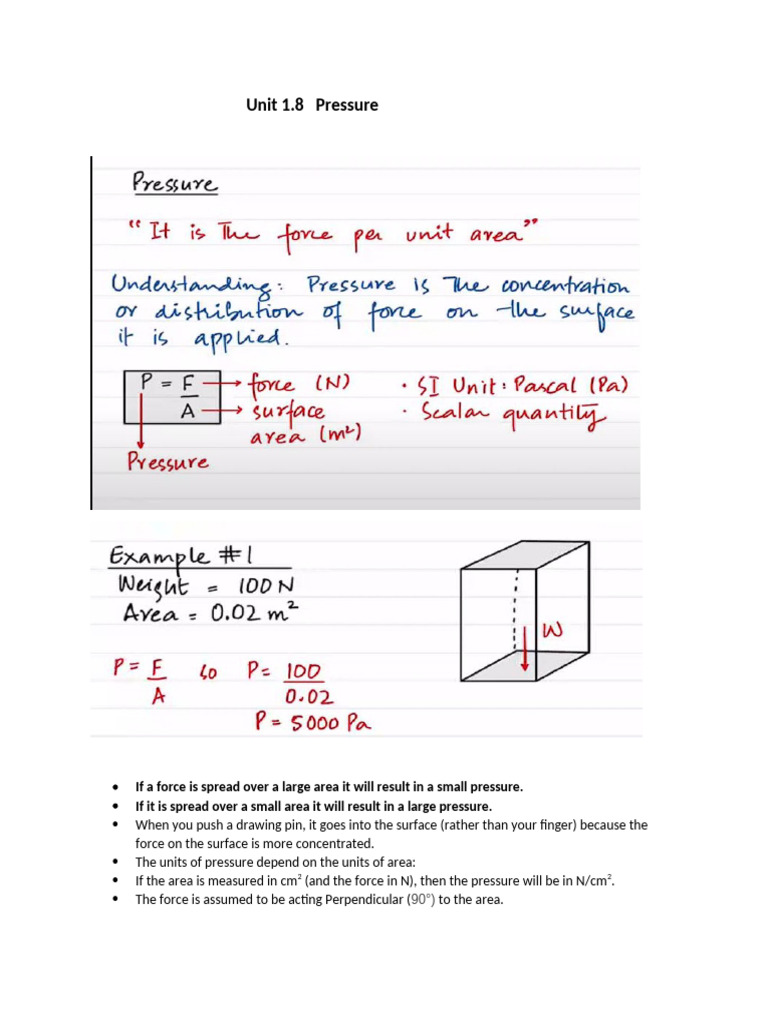 Unit 1.8 Pressure
Pressure
"It is The force per unit area"
Understanding: Pressure is The concentration
or distribution of force on the surface
it is applied.
P = F → force (N)
A → surface
area (m²)
Pressure
• SI Unit: Pascal (Pa)
• Scalar quantity
Example #1
Weight = 100 N
Area = 0.02 m²
P = F so P = 100
A 0.02
P = 5000 Pa
W
• If a force is spread over a large area it will result in a small pressure.
• If it is spread over a small area it will result in a large pressure.
• When you push a drawing pin, it goes into the surface (rather than your finger) because the
force on the surface is more concentrated.
• The units of pressure depend on the units of area:
• If the area is measured in cm² (and the force in N), then the pressure will be in N/cm².
• The force is assumed to be acting Perpendicular (90°) to the area.